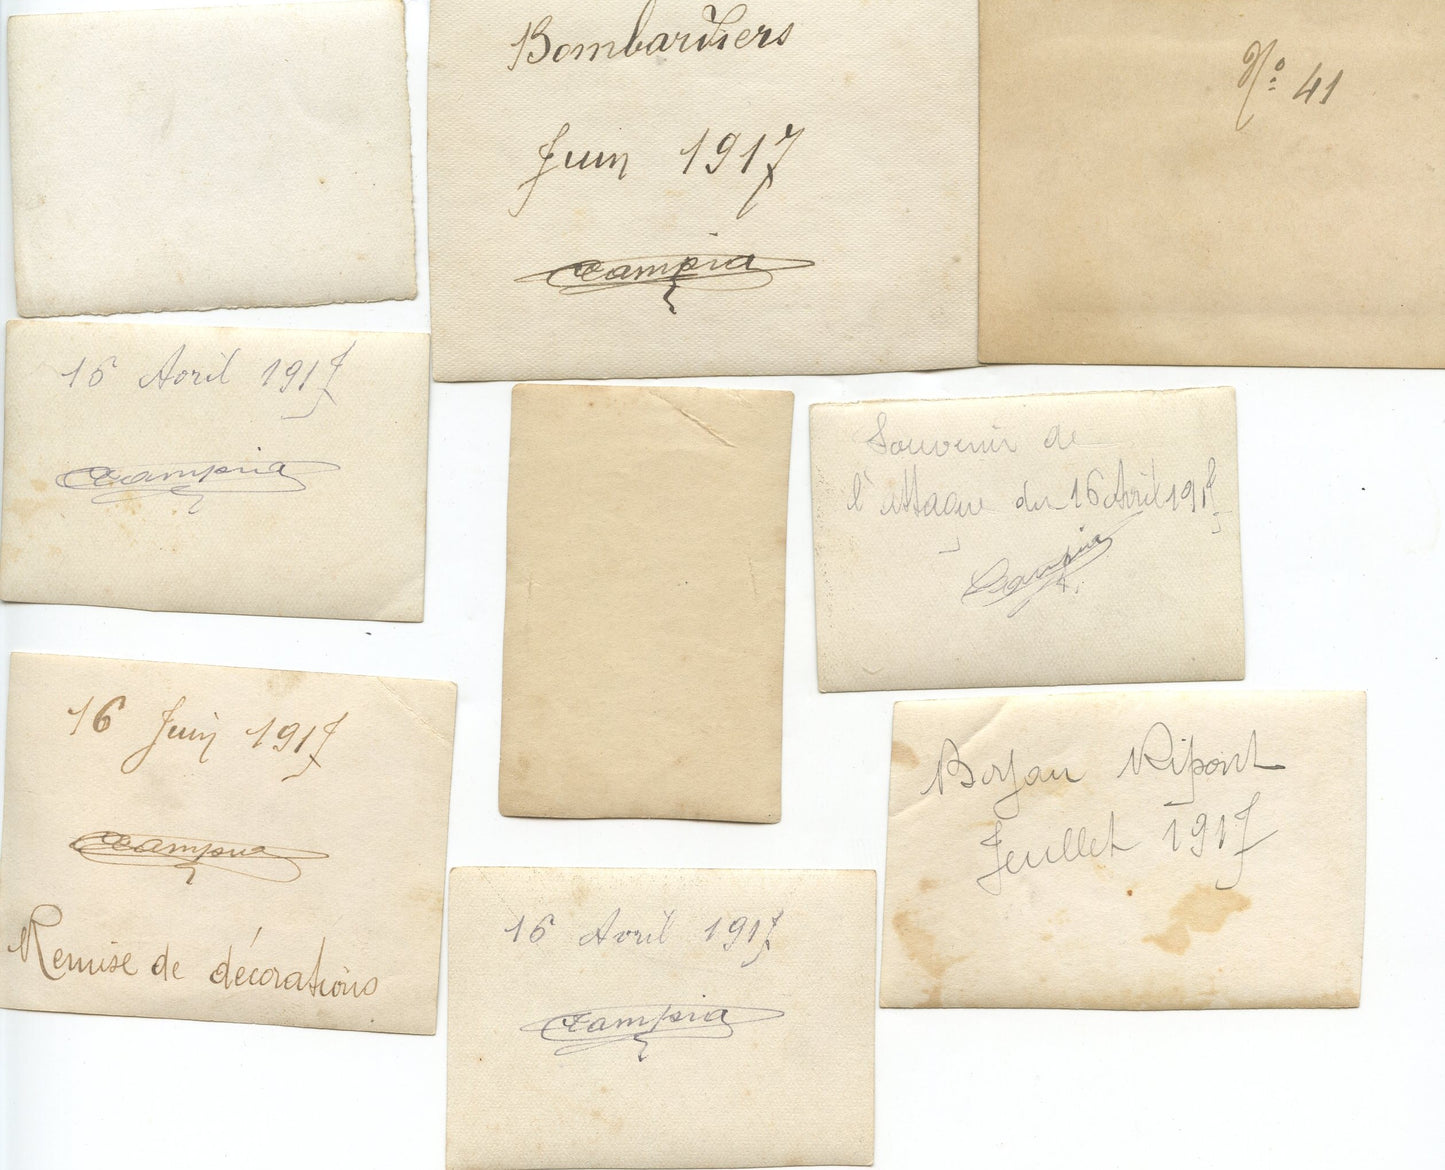 Bombardiers
Juin 1917
Campia
No 41
16 Avril 1917
Campia
Souvenir de
l'attaque du 16 Avril 1917
Campia
16 Juin 1917
Campia
Remise de décorations
Ripont
Juillet 1917
16 Avril 1917
Campia